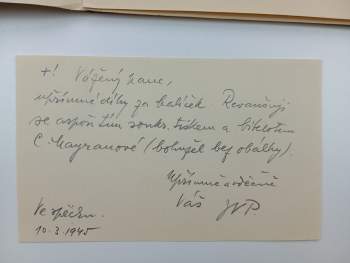 +! Vážený pane,
upřímné díky za balíček. Revanšuji
se aspoň tím soukr. tiskem a biblotem
C. Mayranové (bohužel bez obálky).
Upřímně a vděčně
Váš JVP.
Ve spěchu.
10.3.1945